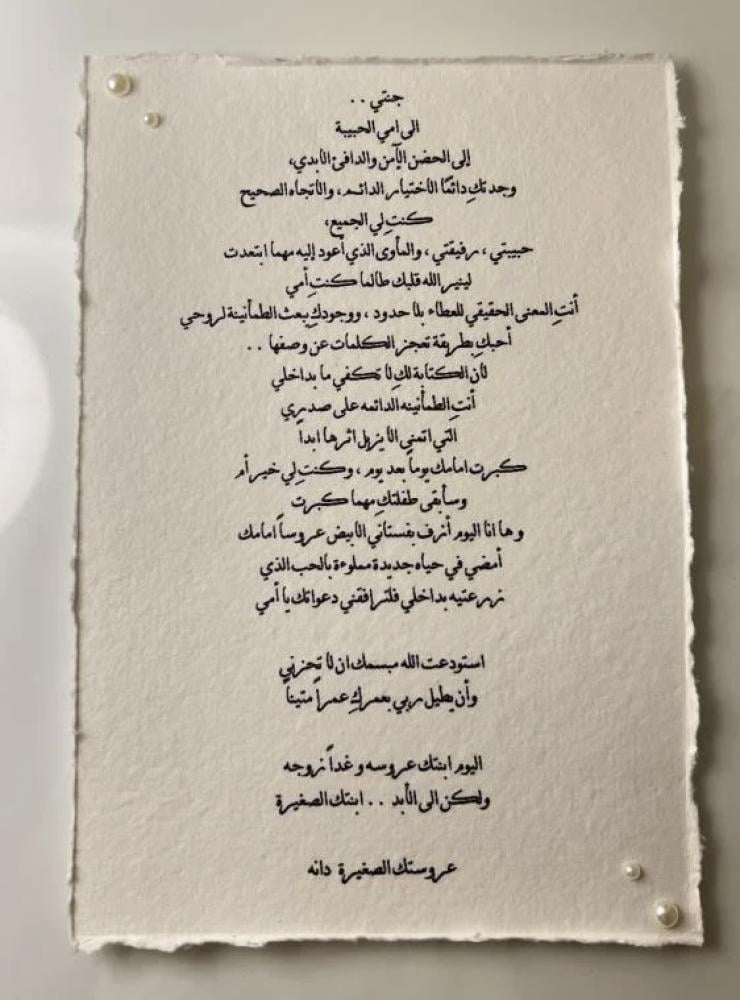 جنتي . .
الى امي الحبيبة
إلى الحضن الآمن والدافئ الأبدي،
وجدتكِ دائمًا الأختيار الدائم، والأتجاه الصحيح
كنتِ لي الجميع،
حبيبتي، رفيقتي، والمأوى الذي أعود إليه مهما ابتعدت
لينير الله قلبك طالما كنتِ أمي
أنتِ المعنى الحقيقي للعطاء بلا حدود، ووجودكِ بعث الطمأنينة لروحي
أحبكِ بطريقة تعجز الكلمات عن وصفها . .
لأن الكتابة لكِ لا تكفي ما بداخلي
أنتِ الطمأنينه الدائمه على صدري
التي اتمنى الا يزيل اثرها ابداً
كبرت امامك يوماً بعد يوم، وكنتِ لي خير أم
وسأبقى طفلتكِ مهما كبرت
وها انا اليوم أزف بفستاني الأبيض عروساً امامك
أمضي في حياه جديدة مملوءة بالحب الذي
زرعتيه بداخلي فلترافقني دعواتك يا أمي
استودعت الله مبسمك ان لا تحزني
وأن يطيل ربي بعمركِ عمراً متيناً
اليوم ابنتك عروسه وغداً زوجه
ولكن الى الأبد . . ابنتك الصغيرة
عروستك الصغيرة دانه